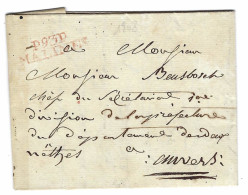 P93P
MALINES
a Monsieur
Monsieur
chef du Sécrétariat 1re
division de la préfecture
du département des deux
nèthes a
: anvers :